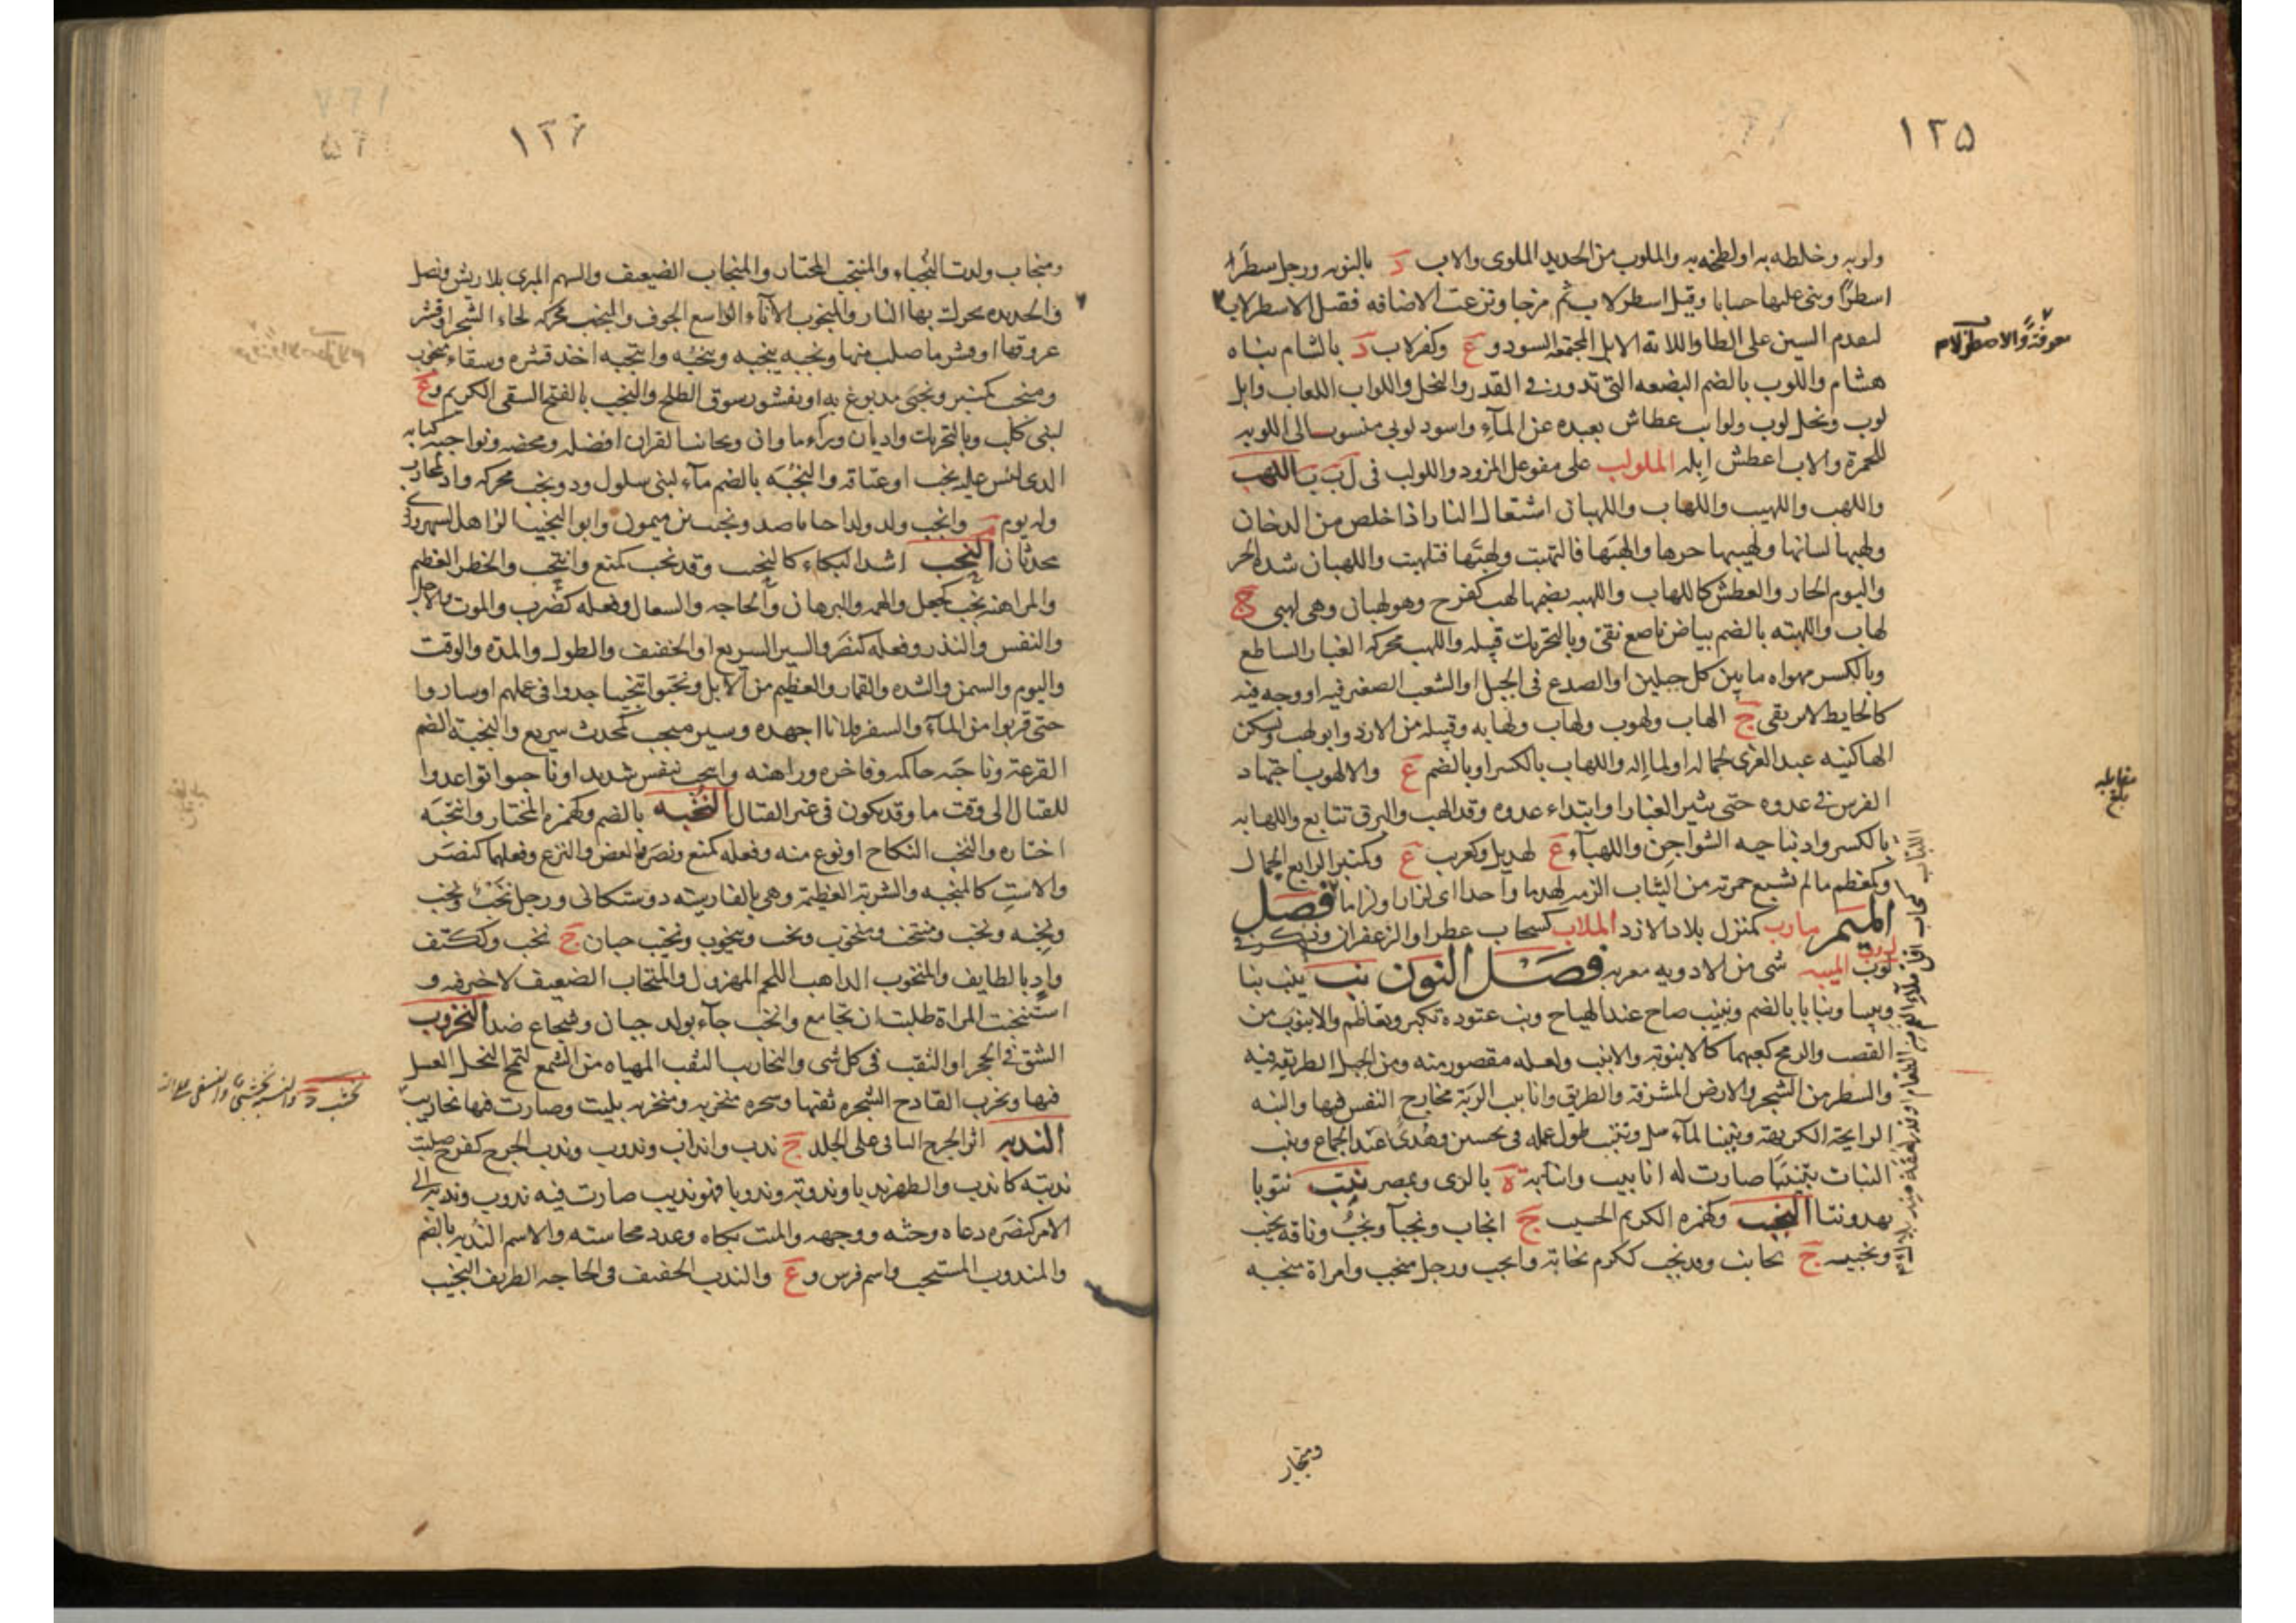 ١٢٥
ولوبه وخلطه به او لطخه به والملوب من الحديد الملوى والاب د بالنوبه ورجل سطر
اسطرًا وبنى عليها حسابا وقيل اسطرلاب ثم مزجا ونزعت الاضافه فقيل الاسطرلاب
معرفة والاصطرلاب
لتقدم السين على الطا واللابة الابل المجتمعه السود و ع وكفرلاب د بالشام بناه
هشام واللوب بالضم البضعه التى تدور فى القدر والنحل واللواب اللعاب وابل
لوب ونخل لوب ولوايب عطاش بعيده عن الماء واسود لوبى منسوب الى اللوبه
للحرة والاب اعطش ابله الملولب على مفوعل المرود واللولب فى ل ب ب اللهب
واللهب واللهيب واللهاب واللهبان اشتعال النار اذا خلص من الدخان
ولهبها لسانها ولهيبها حرها والهبها فالتهبت ولهبها فتلهبت واللهبان شدة الحر
واليوم الحار والعطش كاللهاب واللهبه بضمها لهب كفرح وهو لهبان وهى لهبى ج
لهاب واللهبه بالضم بياض ناصع نقى وبالتحريك قبيله واللهب محركه الغبار الساطع
وبالكسر مهواه ما بين كل جبلين او الصدع فى الجبل او الشعب الصغير فيه او وجه فيه
كالحايط لا يرتقى ج الهاب ولهوب ولهاب ولهابه وقبيله من الازد وابو لهب وتسكن
الها كنيه عبد العزى لجماله او لماله واللهاب بالكسر او بالضم ع والالهوب اجتهاد
مقابله بلغ
الفرس فى عدوه حتى يثير الغبار او ابتداء عدوه وقد الهب والبرق تتابع واللهابه
بالكسر واد بناحيه الشواجن واللهباء ع لهذيل وكعرب ع وكمنبر الرايع الجمال
وكمعظم ما لم تشبع حمرته من الثياب الزمه لهدما واحدا اى لزازا ولزاما فصل
الميم مارب كمنزل بلاد الازد الملاب كسحاب عطر او الزعفران وذكر فى
لوب الميبه شى من الادويه معربه فصل النون نب ينب نبا
ونبيبا ونبابا بالضم ونبنب صاح عند الهياج ونب عتوده تكبر وتعاظم والانبوب من
القصب والرمح كعبهما كالانبوبه والانبب ولعله مقصور منه ومن الجبل الطريقه فيه
والسطر من الشجر والارض المشرفة والطريق وانابيب الرية مخارج النفس فيها والنبه
الرايحة الكريهة وتنبب الماء سال ونبنب طول عمله فى تحسين وهذى عند الجماع ونبب
النبات تنبيبا صارت له انابيب وانبابة ة بالرى وبمصر نتب نتوبا
نهد ونتا النجيب وكهمزه الكريم الحسيب ج انجاب ونجبا ونجب وناقه نجيب
ونجيبه ج نجايب وقد نجب ككرم نجابة وانجب ورجل منجب وامراة منجبه
ومنجاب
١٢٦
ومنجاب ولدت النجباء والمنتجب المختار والمنجاب الضعيف والسهم المبرى بلا ريش ونصل
والحديده تحرك بها النار والمنجوب الاناء الواسع الجوف والنجب محركه لحاء الشجر او قشر
عروقها او قشر ما صلب منها ونجبه ينجبه وينجبه ونجبه وانتجبه اخذ قشره وسقاء منجوب
ومنجب كمنبر ونجبى مدبوغ به او بقشور سوق الطلح والنجب بالفتح السقى الكريم و ع
لبنى كلب وبالتحريك واديان وراء ماوان ونجايب القران افضله ومحضه ونواجبه لبابه
الذى ليس عليه نجب او عتاقه والنجبه بالضم ماء لبنى سلول وذو نجب محركه واد لمحارب
وله يوم وانجب ولد ولدا جبانا ضد ونجيب بن ميمون وابو النجيب الزاهد السهروردى
محدثان النحب اشد البكاء كالنحيب وقد نحب كمنع وانتحب والخطر العظيم
والمراهنه نحب كجعل والهمه والبرهان والحاجه والسعال وفعله كضرب والموت والاجل
والنفس والنذر وفعله كنصر والسير السريع او الخفيف والطول والمدة والوقت
واليوم والسمن والشدة والقمار والعظيم من الابل ونحبوا تنحيبا جدوا فى عملهم او ساروا
حتى قربوا من الماء والسفر فلانا اجهده وسير منحب كمحدث سريع والنحبة بالضم
القرعة وناحبه حاكمه وفاخره وراهنه وانتحب تنفس شديدا وناحبوا تواعدوا
للقتال الى وقت ما وقد يكون فى غير القتال النخبه بالضم وكهمزه المختار وانتخبه
اختاره والنخب النكاح او نوع منه وفعله كمنع ونصر والعض والنزع وفعلهما كنصر
والاست كالمنخبه والشربة العظيمة وهى بالفارسيه دوستكانى ورجل نخب ونخب
ونخبه ونخب ومنتخب ومنخوب ونخب وينخوب ونخيب جبان ج نخب وككتف
واد بالطايف والمنخوب الذاهب اللحم المهزول والمنخاب الضعيف لا خير فيه و
استنخبت المراة طلبت ان تجامع وانخب جاء بولد جبان وشجاع ضد النخروب
الشق فى الحجر او الثقب فى كل شى والنخاريب الثقب المهياه من الشمع لتمج النحل العسل
فيها ونخرب القادح الشجره ثقبها وشجره منخربه ومنخربه بليت وصارت فيها نخاريب
الندبه اثر الجرح الباقى على الجلد ج ندب وانداب وندوب وندب الجرح كفرح صلبت
ندبته كاندب والظهر ندبا وندوبة وندوبا فهو نديب صارت فيه ندوب وندبه الى
الامر كنصره دعاه وحثه ووجهه والميت بكاه وعدد محاسنه والاسم الندبه بالضم
والمندوب المستحب واسم فرس و ع والندب الخفيف فى الحاجه الظريف النجيب